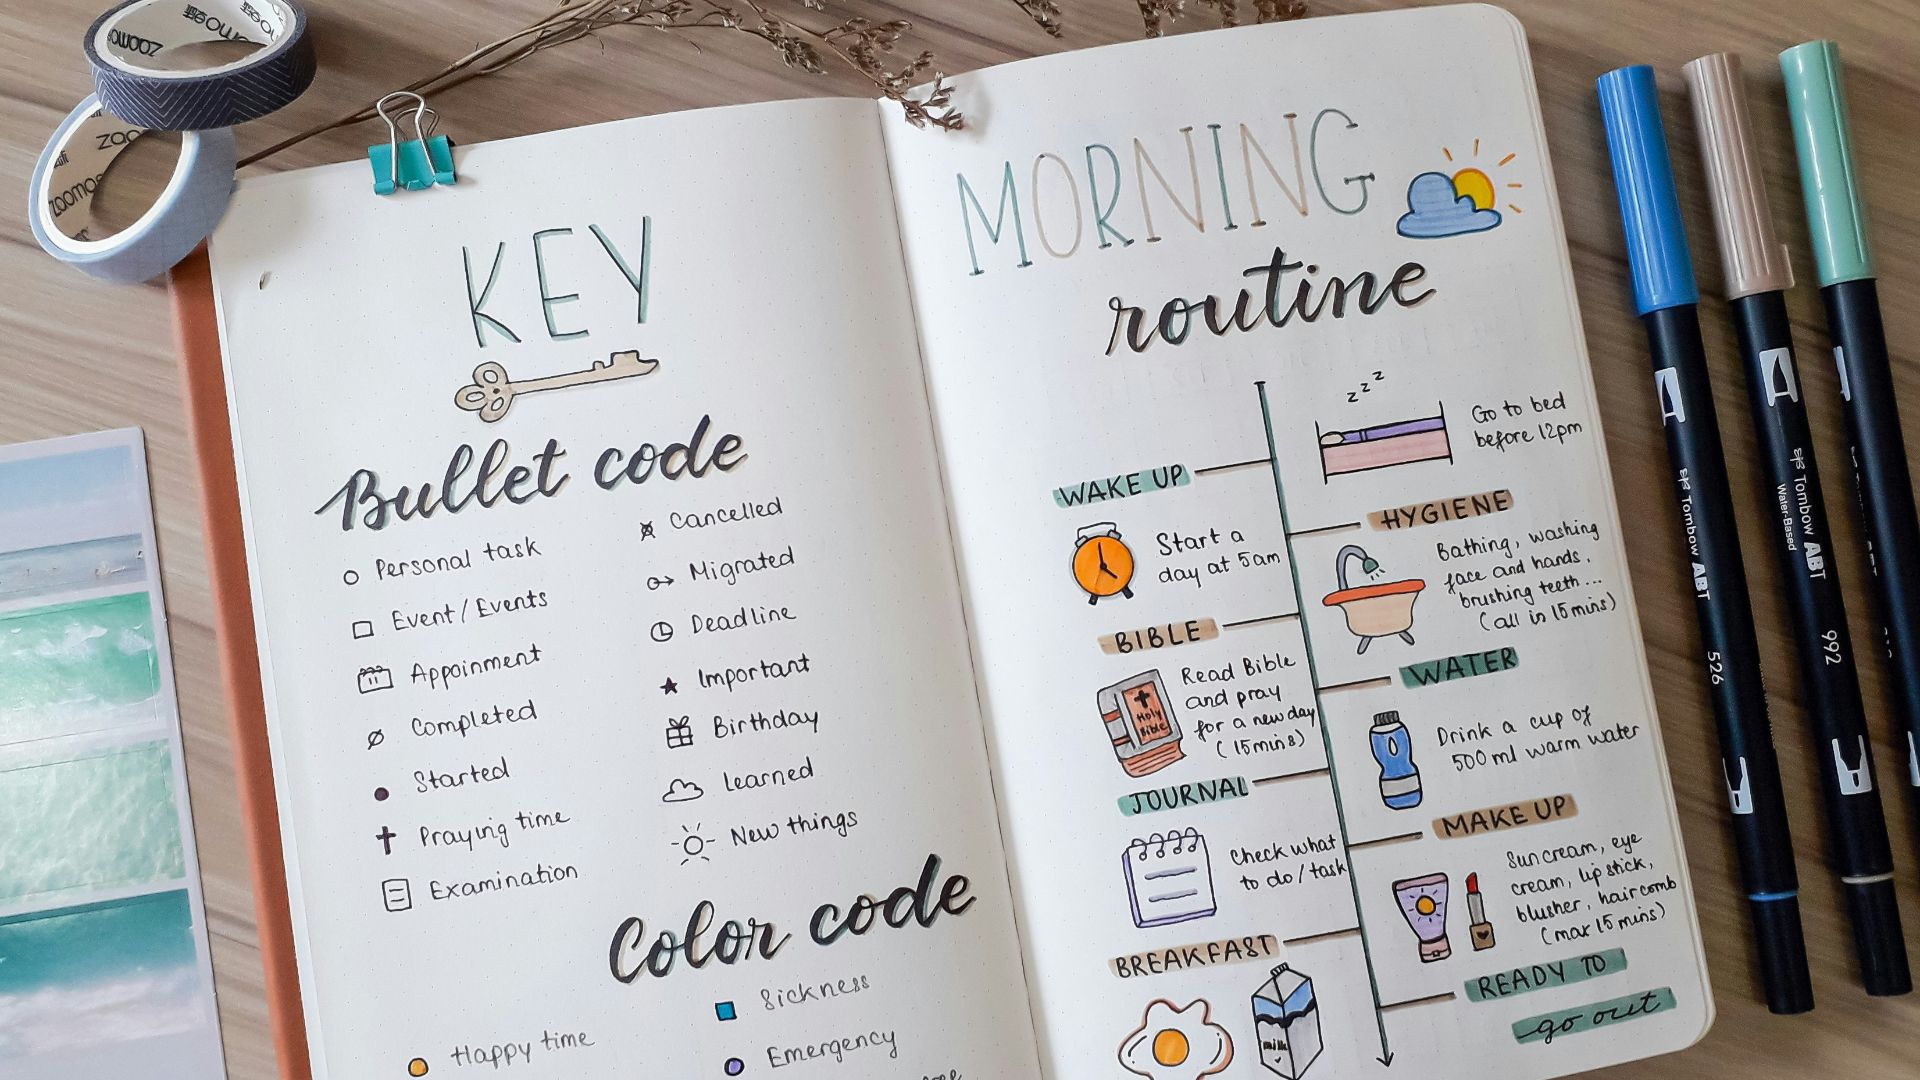 KEY
Bullet code
Personal task
Event / Events
Appoinment
Completed
Started
Praying time
Examination
Cancelled
Migrated
Deadline
Important
Birthday
Learned
New things
Color code
Happy time
Sickness
Emergency
MORNING
routine
z z z
Go to bed
before 12pm
WAKE UP
Start a
day at 5am
HYGIENE
Bathing, washing
face and hands,
brushing teeth...
(all in 15 mins)
BIBLE
Holy
Bible
Read Bible
and pray
for a new day
(15mins)
WATER
Drink a cup of
500 ml warm water
JOURNAL
Check what
to do / task
MAKE UP
Suncream, eye
cream, lip stick,
blusher, hair comb
(max 15 mins)
BREAKFAST
milk
READY TO
go out
Tombow ABT
526
Tombow ABT
Water-Based
992